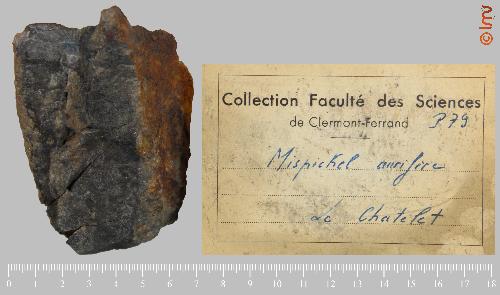 © lmv
Collection Faculté des Sciences
de Clermont-Ferrand P79
Mispickel aurifère
Le Chatelet
0 1 2 3 4 5 6 7 8 9 10 11 12 13 14 15 16 17 18